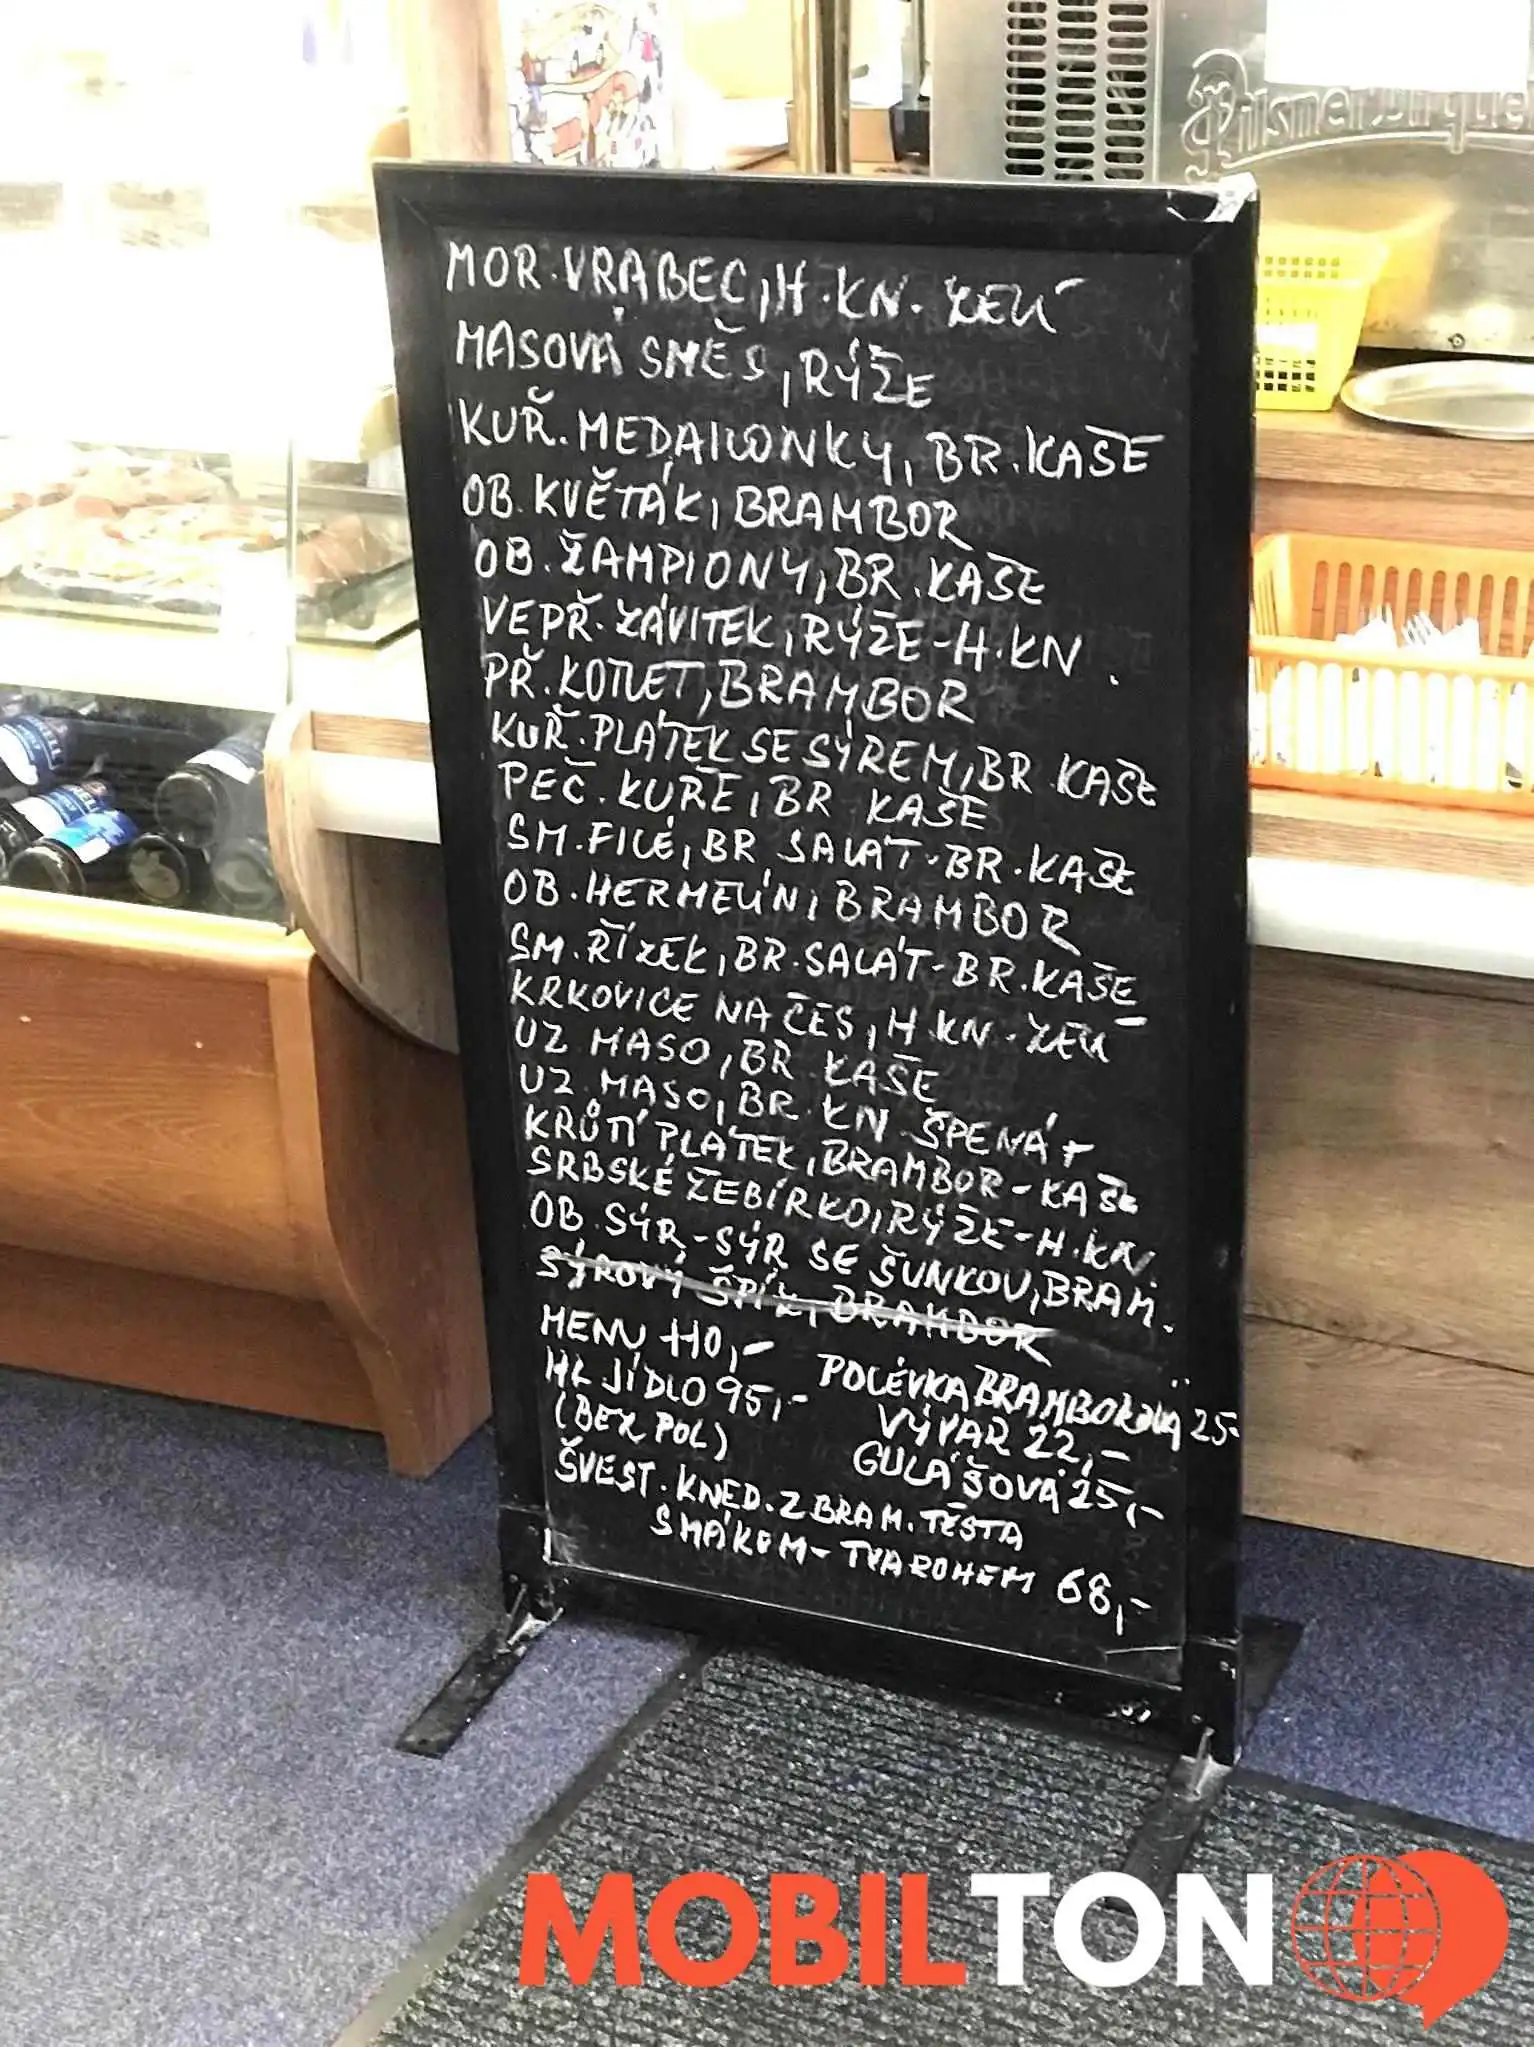 Pilsner Urquell
MOR. VRABEC, H. KN. ZELÍ
MASOVÁ SMĚS, RÝŽE
KUŘ. MEDAILONKY, BR. KAŠE
OB. KVĚTÁK, BRAMBOR
OB. ŽAMPIONY, BR. KAŠE
VEPŘ. ZÁVITEK, RÝŽE - H. KN.
PŘ. KOTLET, BRAMBOR
KUŘ. PLÁTEK SE SÝREM, BR. KAŠE
PEČ. KUŘE, BR KAŠE
SM. FILÉ, BR SALÁT - BR. KAŠE
OB. HERMELÍN, BRAMBOR
SM. ŘÍZEK, BR. SALÁT - BR. KAŠE
KRKOVICE NA ČES, H. KN. ZELÍ
UZ MASO, BR KAŠE
UZ. MASO, BR. KN ŠPENÁT
KRŮTÍ PLÁTEK, BRAMBOR - KAŠE
SRBSKÉ ŽEBÍRKO, RÝŽE - H. KN.
OB. SÝR, - SÝR SE ŠUNKOU, BRAM.
SÝROVÝ ŠPÍZ, BRAMBOR
MENU 110,-
HL JÍDLO 95,-
(BEZ POL)
POLÉVKA BRAMBOROVÁ 25-
VÝVAR 22,-
GULÁŠOVÁ 25,-
ŠVEST. KNED. Z BRAM. TĚSTA
S MÁKEM - TVAROHEM 68,-
MOBILTON